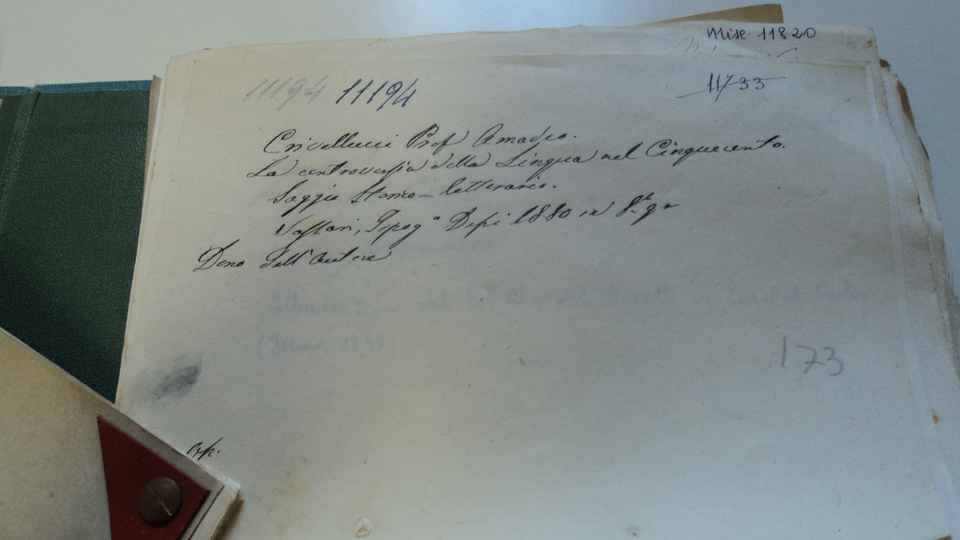 Misc 11820
11194 11194
11733
Crivellucci Prof Amadeo.
La controversia della Lingua nel Cinquecento.
Saggio Storico-letterario.
Sassari, Tipog.a Dessì 1880 in 8.º gr
Dono dell'Autore
173